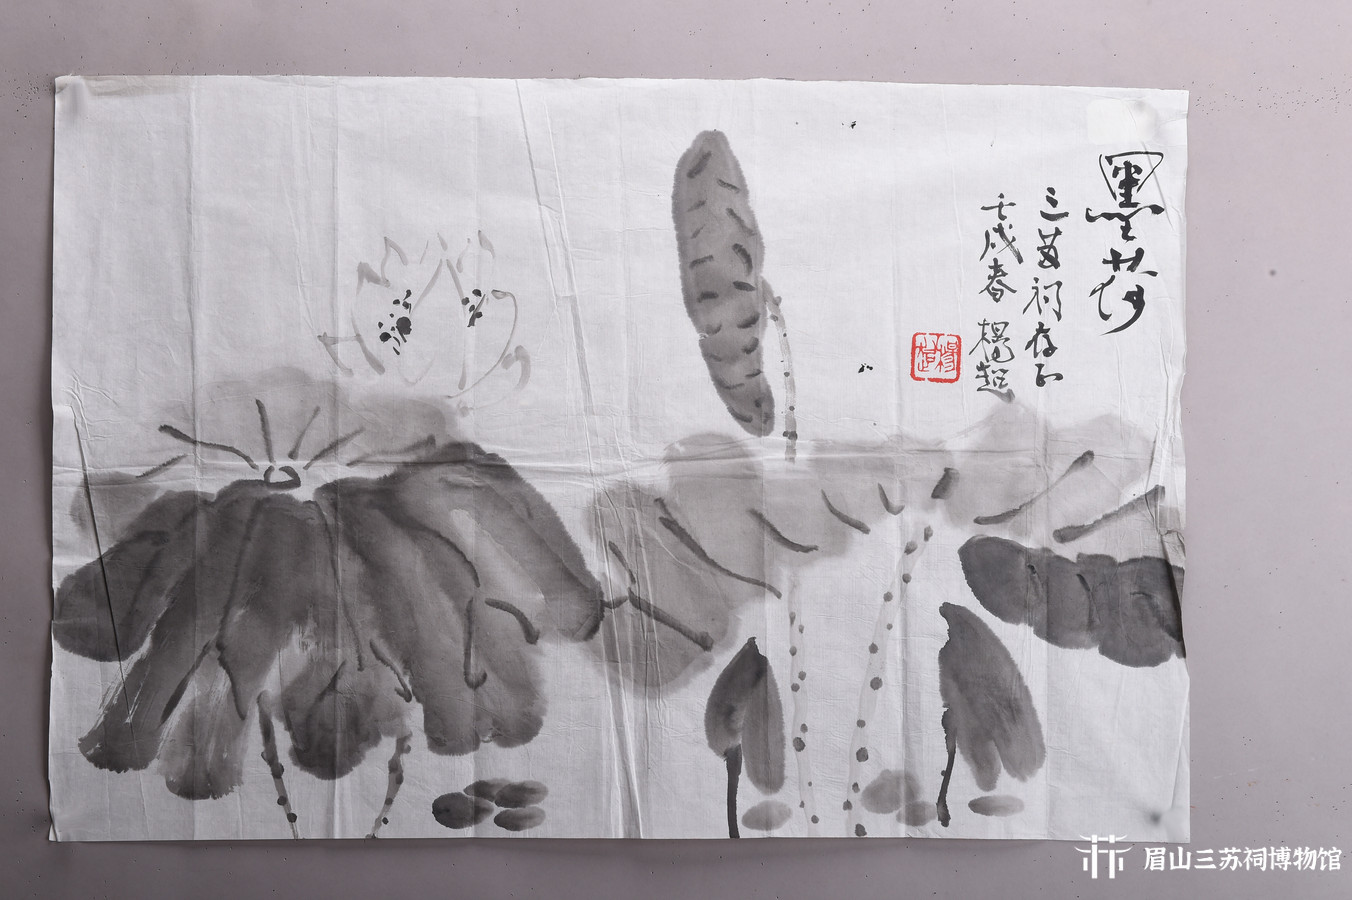 墨荷
三苏祠存正
壬戌春 楊超
楊超
眉山三苏祠博物馆